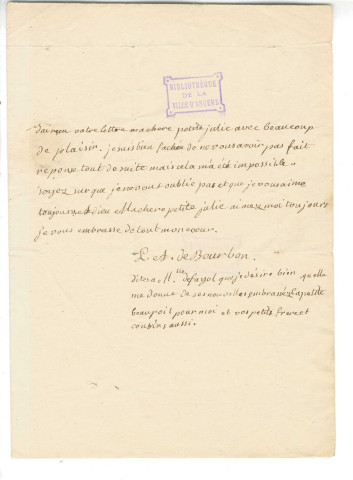 BIBLIOTHÈQUE
DE LA
VILLE D'ANGERS
Jai reçu votre lettre ma chere petite julie avec beaucoup
de plaisir. je suis bien fachée de ne vous avoir pas fait
réponse tout de suite mais cela ma été impossible
soyez sur que je ne vous oublie pas et que je vous aime
toujours Adieu Ma chere petite julie aimez moi toujours
je vous embrasse de tout mon coeur.
L. A. de Bourbon.
dites a Mlle que je desire bien quelle
me donne de ses nouvelles embrassez la petite
beaupoil pour moi et vos petits freres et
cousins aussi.